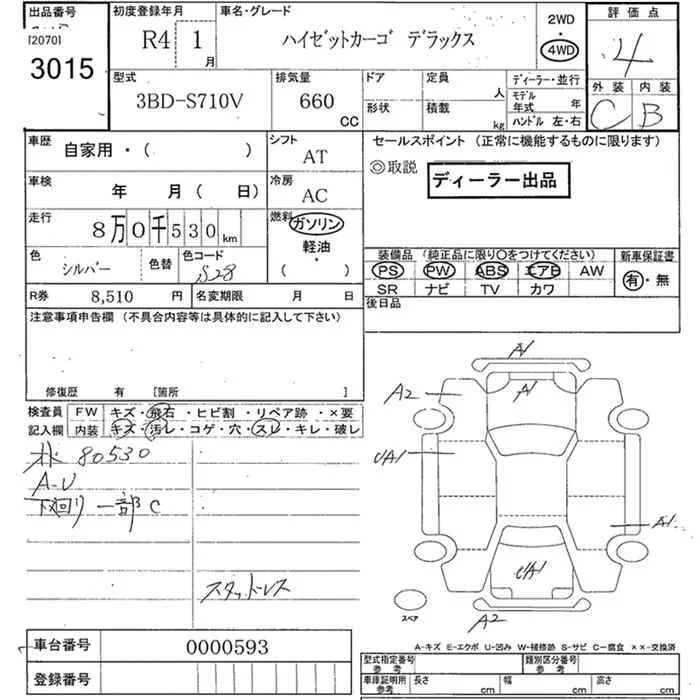 出品番号 初度登録年月 車名・グレード 2WD・4WD 評価点
[2070] R4 1月 ハイゼットカーゴ デラックス 4
3015
型式 排気量 ドア 定員 人 ディーラー・並行 外装 内装
3BD-S710V 660 CC 形状 積載 kg モデル年式 年 C B
ハンドル 左・右
車歴 自家用・( ) シフト AT セールスポイント (正常に機能するものに限ります)
◎取説 ディーラー出品
車検 年 月( 日) 冷房 AC
走行 8万0千530km 燃料 ガソリン・軽油・( )
色 シルバー 色替 色コード S28
装備品 (純正品に限り○をつけてください) 新車保証書
PS PW ABS エアB AW 有・無
SR ナビ TV カワ
R券 8,510 円 名変期限 月 日 後日品
注意事項申告欄 (不具合内容等は具体的に記入して下さい)
修復歴 有 [箇所 ]
検査員 FW キズ・飛石・ヒビ割・リペア跡・×要
記入欄 内装 キズ・汚レ・コゲ・穴・スレ・キレ・破レ
80530
A-U
下廻り一部C
スタッドレス
A1
A2 A1
UA1
A1
UA1
スペア A2
A-キズ E-エクボ U-凹み W-補修跡 S-サビ C-腐食 ××-交換済
車台番号 0000593
登録番号
型式指定番号 参考 類別区分番号 参考
車庫証明用 参考 長さ cm 幅 cm 高さ cm